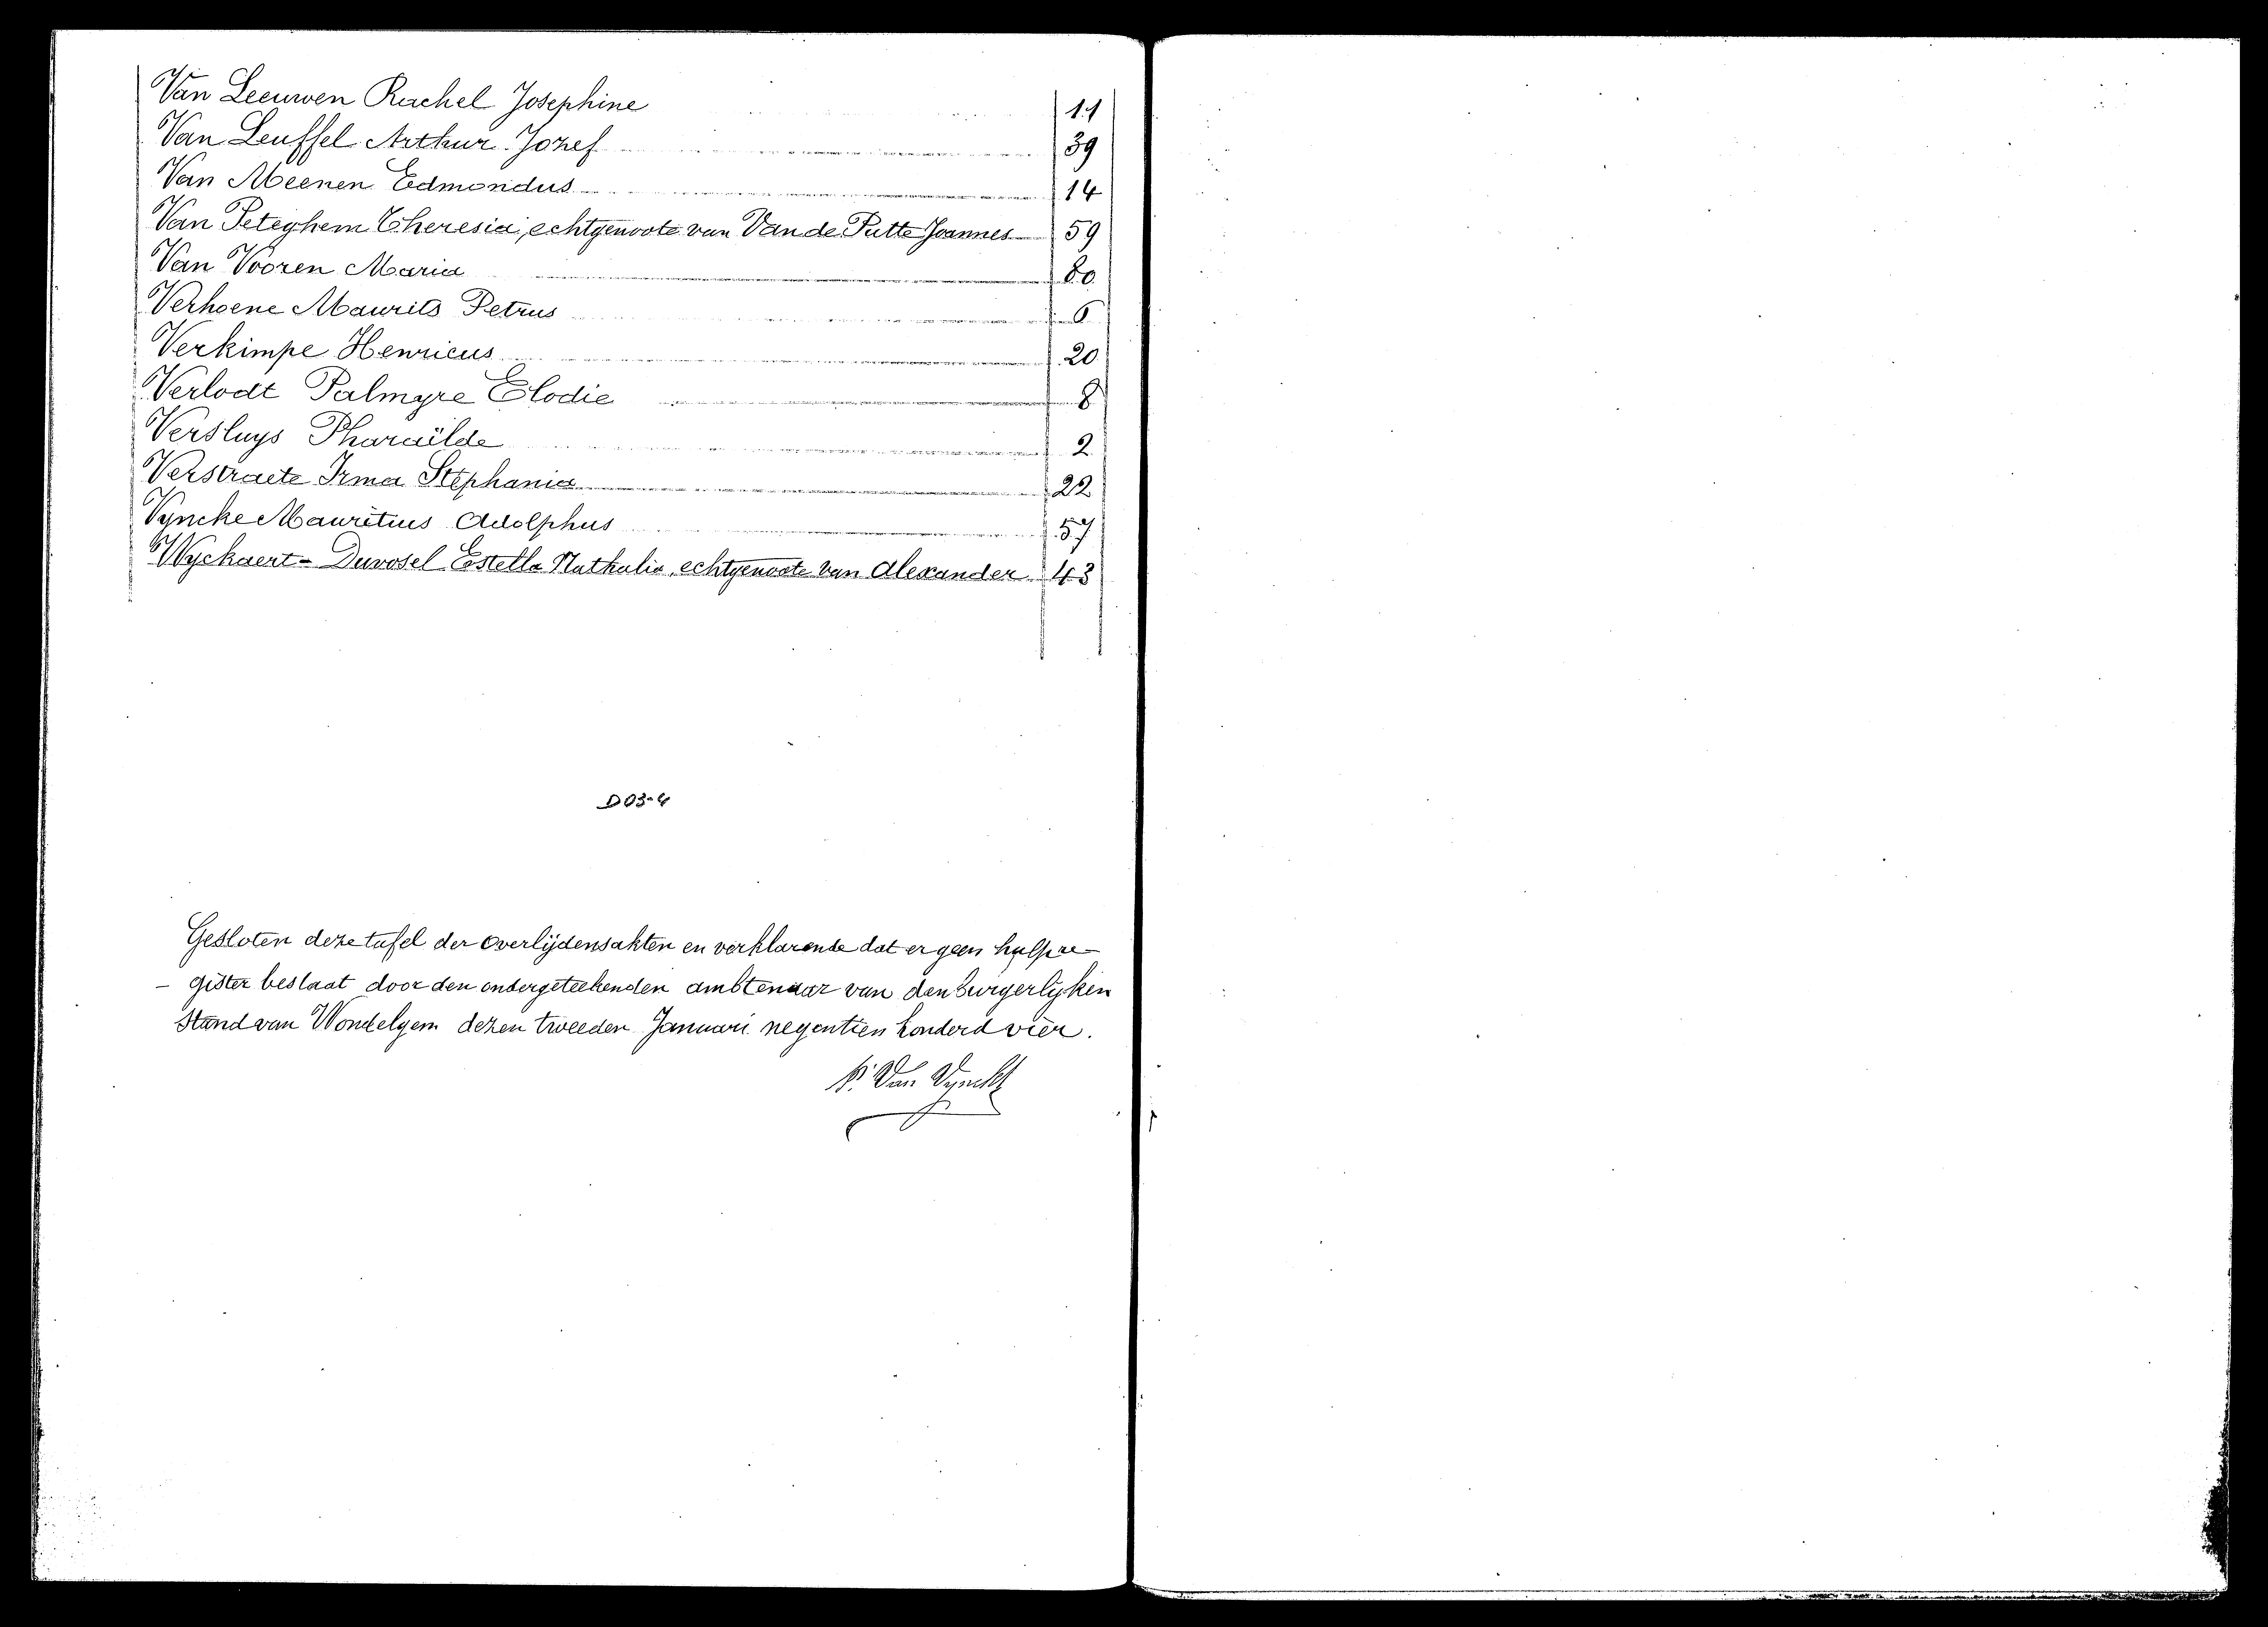 Van Leeuwen Rachel Josephine 11
Van Leuffel Arthur Jozef 39
Van Meenen Edmondus 14
Van Peteghem Theresia, echtgenoote van Van de Putte Joannes 59
Van Vooren Maria 80
Verhoene Maurits Petrus 6
Verkimpe Henricus 20
Verlodt Palmyre Elodie 8
Versluys Pharaïlde 2
Verstraete Irma Stephania 22
Vyncke Mauritius Adolphus 57
Wyckaert - Duvosel Estella Nathalia, echtgenoote van Alexander 43
D03-4
Gesloten deze tafel der overlijdensakten en verklarende dat er geen hulpre-
- gister bestaat door den ondergeteekenden ambtenaar van den burgerlijken
stand van Wondelgem dezen tweeden Januari negentien honderd vier.
Van